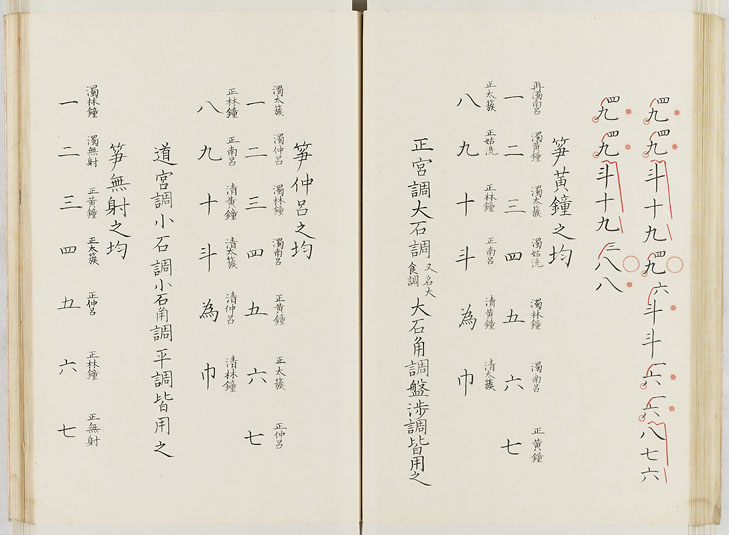 四九四九斗十九四九六斗斗一六一六八七六
四九四九斗十九三八八
箏黃鐘之均
再濁南呂 濁黃鐘 濁太簇 濁姑洗 濁林鐘 濁南呂 正黃鐘
一 二 三 四 五 六 七
正太簇 正姑洗 正林鐘 正南呂 清黃鐘 清太簇
八 九 十 斗 為 巾
正宮調大石調又名大食調大石角調盤涉調皆用之
箏仲呂之均
濁太簇 濁仲呂 濁林鐘 濁南呂 正黃鐘 正太簇 正仲呂
一 二 三 四 五 六 七
正林鐘 正南呂 清黃鐘 清太簇 清仲呂 清林鐘
八 九 十 斗 為 巾
道宮調小石調小石角調平調皆用之
箏無射之均
濁林鐘 濁無射 正黃鐘 正太簇 正仲呂 正林鐘 正無射
一 二 三 四 五 六 七